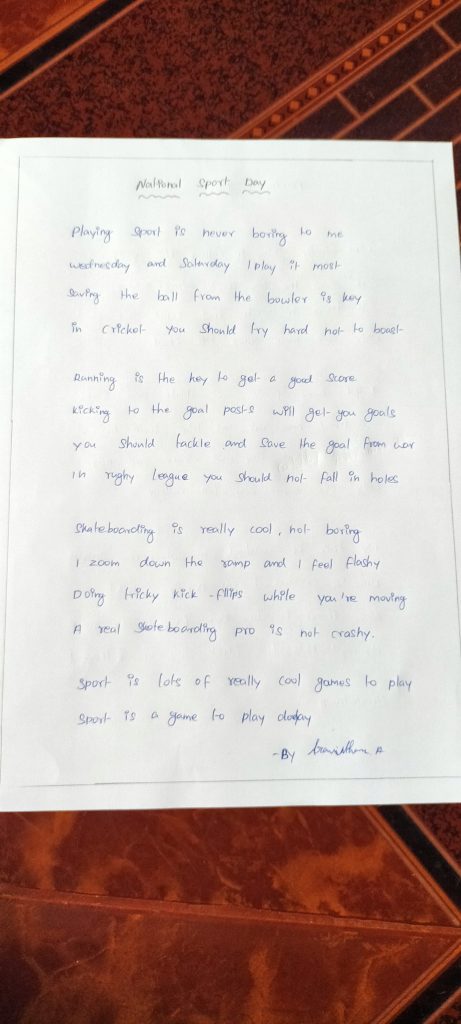 National Sport Day
Playing sport is never boring to me
wednesday and Saturday I play it most
Saving the ball from the bowler is key
in cricket you should try hard not to boast
Running is the key to get a good score
kicking to the goal posts will get you goals
you should tackle and save the goal from war
in rugby league you should not fall in holes
Skateboarding is really cool, not boring
I zoom down the ramp and I feel flashy
Doing tricky kick-flips while you're moving
A real skateboarding pro is not crashy.
sport is lots of really cool games to play
sport is a game to play
-By
A